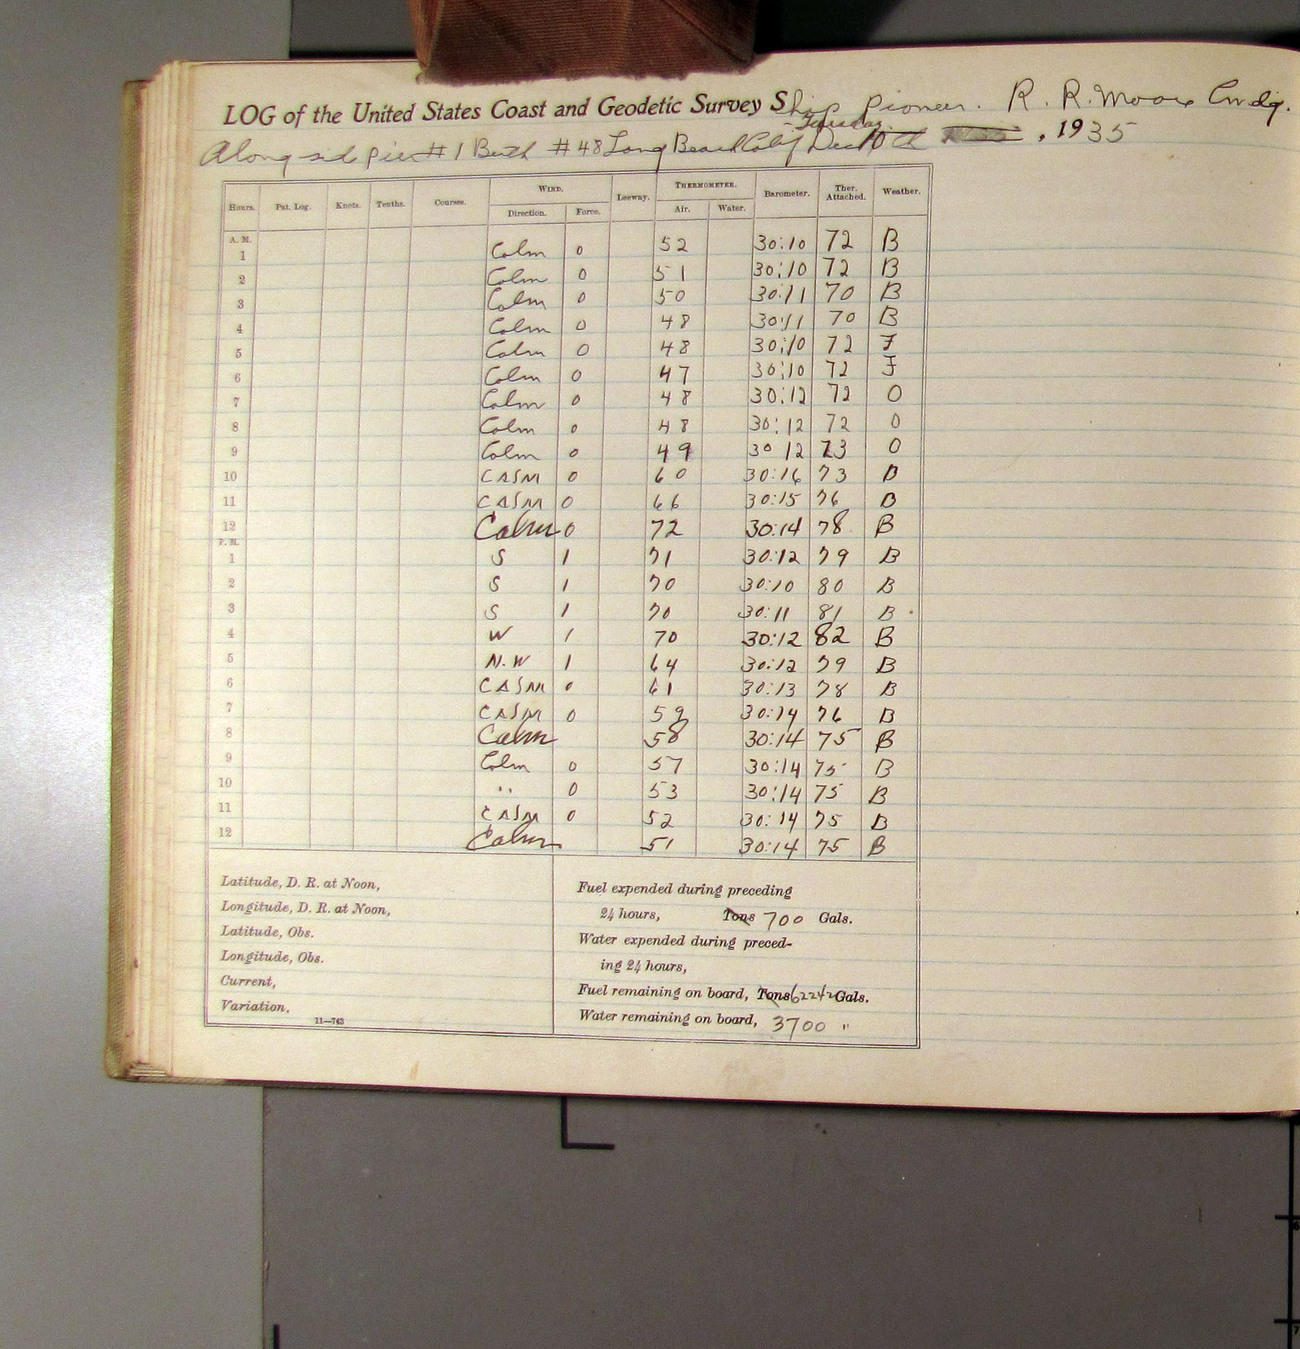 LOG of the United States Coast and Geodetic Survey Ship Pioneer. R. R. Moore Cmdg.
-Tuesday-
Along side pier #1 Berth #48 Long Beach Calif Dec 10th , 1935
Hours. Pat. Log. Knots. Tenths. Courses. WIND. Leeway. THERMOMETER. Barometer. Ther. Attached. Weather.
Direction. Force. Air. Water.
A. M.
1 Calm 0 52 30:10 72 B
2 Calm 0 51 30:10 72 B
3 Calm 0 50 30:11 70 B
4 Calm 0 48 30:11 70 B
5 Calm 0 48 30:10 72 F
6 Calm 0 47 30:10 72 F
7 Calm 0 48 30:12 72 O
8 Calm 0 48 30:12 72 O
9 Calm 0 49 30 12 73 O
10 CALM 0 60 30:16 73 B
11 CALM 0 66 30:15 76 B
12 Calm 0 72 30:14 78 B
P. M.
1 S 1 71 30:12 79 B
2 S 1 70 30:10 80 B
3 S 1 70 30:11 81 B
4 W 1 70 30:12 82 B
5 N.W 1 64 30:12 79 B
6 CALM 0 61 30:13 78 B
7 CALM 0 59 30:14 76 B
8 Calm 58 30:14 75 B
9 Calm 0 57 30:14 75 B
10 " 0 53 30:14 75 B
11 CALM 0 52 30:14 75 B
12 Calm 51 30:14 75 B
Latitude, D. R. at Noon,
Longitude, D. R. at Noon,
Latitude, Obs.
Longitude, Obs.
Current,
Variation,
11—743
Fuel expended during preceding
24 hours, Tons 700 Gals.
Water expended during preced-
ing 24 hours,
Fuel remaining on board, Tons 62242 Gals.
Water remaining on board, 3700 "